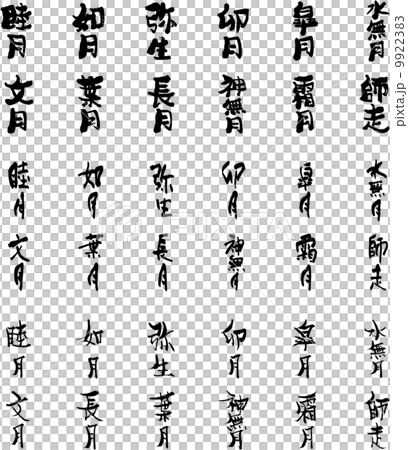 睦月 如月 弥生 卯月 皐月 水無月
文月 葉月 長月 神無月 霜月 師走
睦月 如月 弥生 卯月 皐月 水無月
文月 葉月 長月 神無月 霜月 師走
睦月 如月 弥生 卯月 皐月 水無月
文月 長月 葉月 神無月 霜月 師走
PIXTA
pixta.jp - 9922383